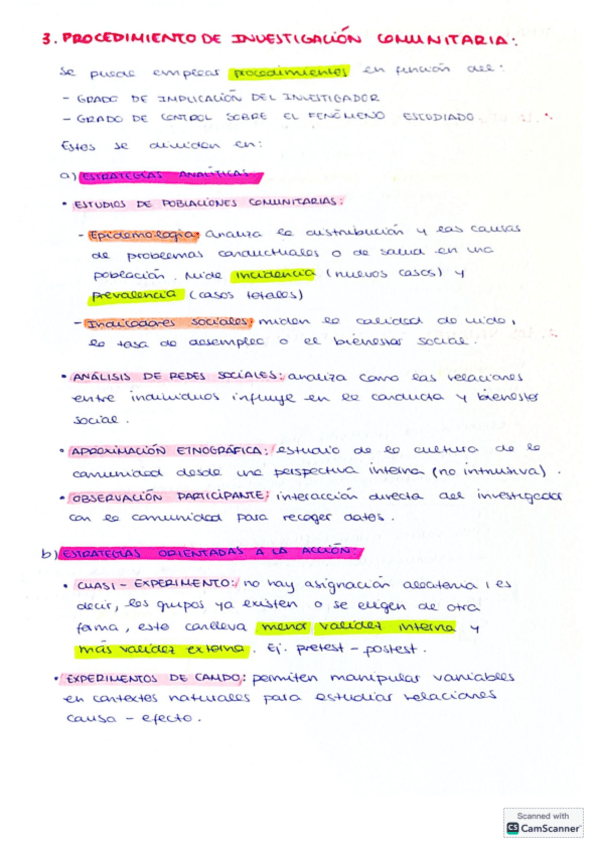 3. PROCEDIMIENTO DE INVESTIGACIÓN COMUNITARIA:
Se puede emplear procedimientos en función del:
- GRADO DE IMPLICACIÓN DEL INVESTIGADOR
- GRADO DE CONTROL SOBRE EL FENÓMENO ESTUDIADO.
Estos se dividen en:
a) ESTRATEGIAS ANALÍTICAS
• ESTUDIOS DE POBLACIONES COMUNITARIAS:
- Epidemiología: analiza la distribución y las causas
de problemas conductuales o de salud en una
población. Mide incidencia (nuevos casos) y
prevalencia (casos totales)
- Indicadores sociales: miden la calidad de vida,
la tasa de desempleo o el bienestar social.
• ANÁLISIS DE REDES SOCIALES: analiza como las relaciones
entre individuos influye en la conducta y bienestar
social.
• APROXIMACIÓN ETNOGRÁFICA: estudio de la cultura de la
comunidad desde una perspectiva interna (no intrusiva).
• OBSERVACIÓN PARTICIPANTE: interacción directa del investigador
con la comunidad para recoger datos.
b) ESTRATEGIAS ORIENTADAS A LA ACCIÓN:
• CUASI - EXPERIMENTO: no hay asignación aleatoria, es
decir, los grupos ya existen o se eligen de otra
forma, esto conlleva menor validez interna y
más validez externa. Ej. pretest - postest.
• EXPERIMENTOS DE CAMPO: permiten manipular variables
en contextos naturales para estudiar relaciones
causa - efecto.
Scanned with
CS CamScanner